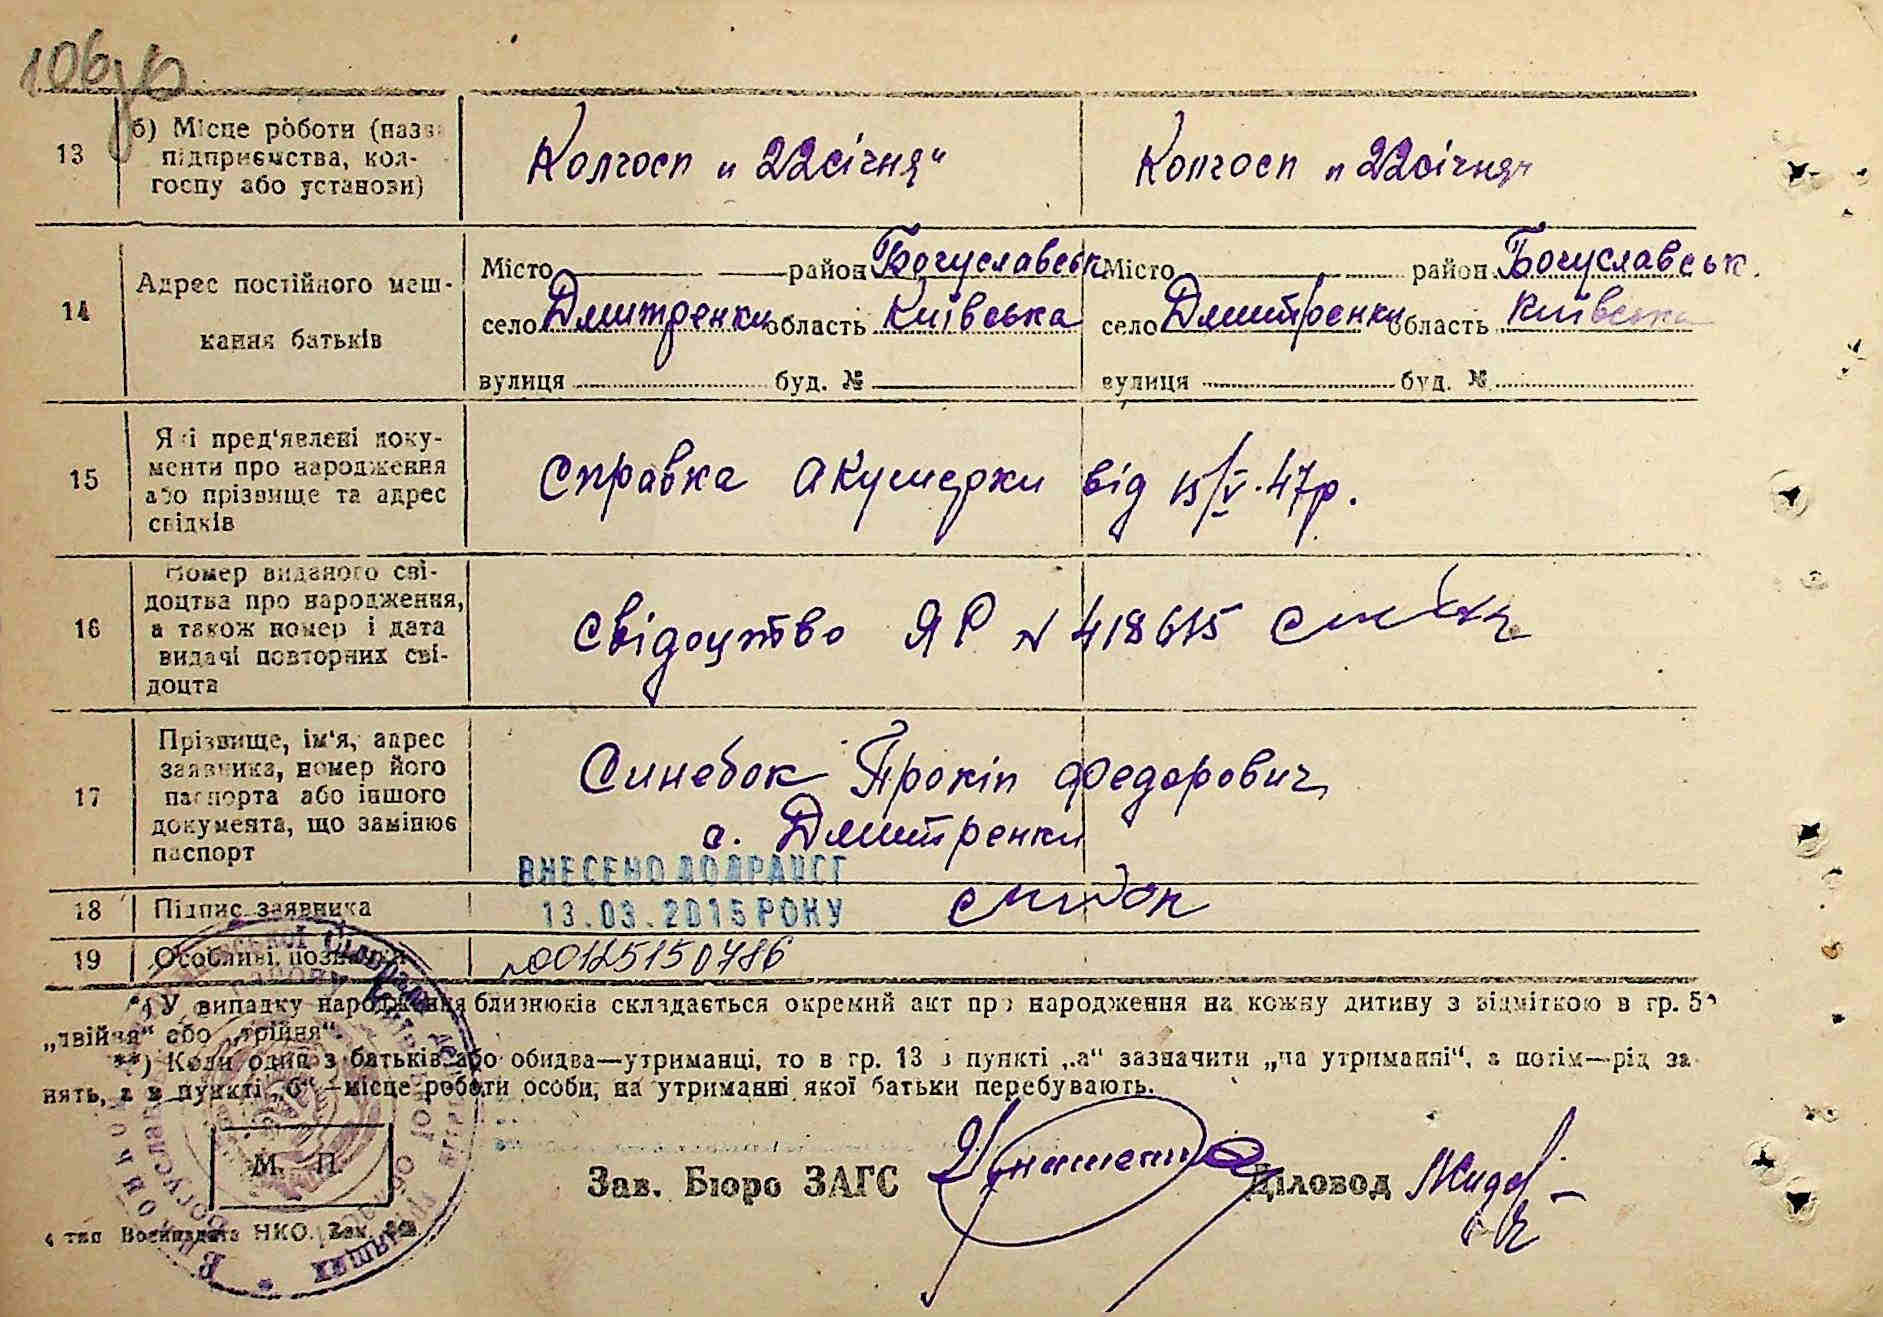 106
13
б) Місце роботи (назва
підприємства, кол-
госпу або установи)
Колгосп „22 січня"
Колгосп „22 січня"
14
Адрес постійного меш-
кання батьків
Місто район Богуславськ
село Дмитренки область Київська
вулиця буд. №
Місто район Богуславськ.
село Дмитренки область Київська
вулиця буд. №
15
Які пред'явлені доку-
менти про народження
або прізвище та адрес
свідків
Справка акушерки від 15/V.47р.
16
Номер виданого сві-
доцтва про народження,
а також номер і дата
видачі повторних сві-
доцтв
Свідоцтво ЯР N 418615
17
Прізвище, ім'я, адрес
заявника, номер його
паспорта або іншого
документа, що замінює
паспорт
Синебок Прокіп Федорович
с. Дмитренки
ВНЕСЕНО ДО ДРАЦСГ
13.03.2015 РОКУ
18
Підпис заявника
19
Особливі позначки
00125150786
*) У випадку народження близнюків складається окремий акт про народження на кожну дитину з відміткою в гр. 5
„двійня“ або „трійня“.
**) Коли один з батьків або обидва—утриманці, то в гр. 13 в пункті „а“ зазначити „на утриманні“, а потім—рід за-
нять, а в пункті „б“—місце роботи особи, на утриманні якої батьки перебувають.
М. П.
Зав. Бюро ЗАГС
Діловод
4 тип Воениздата НКО. Зак.